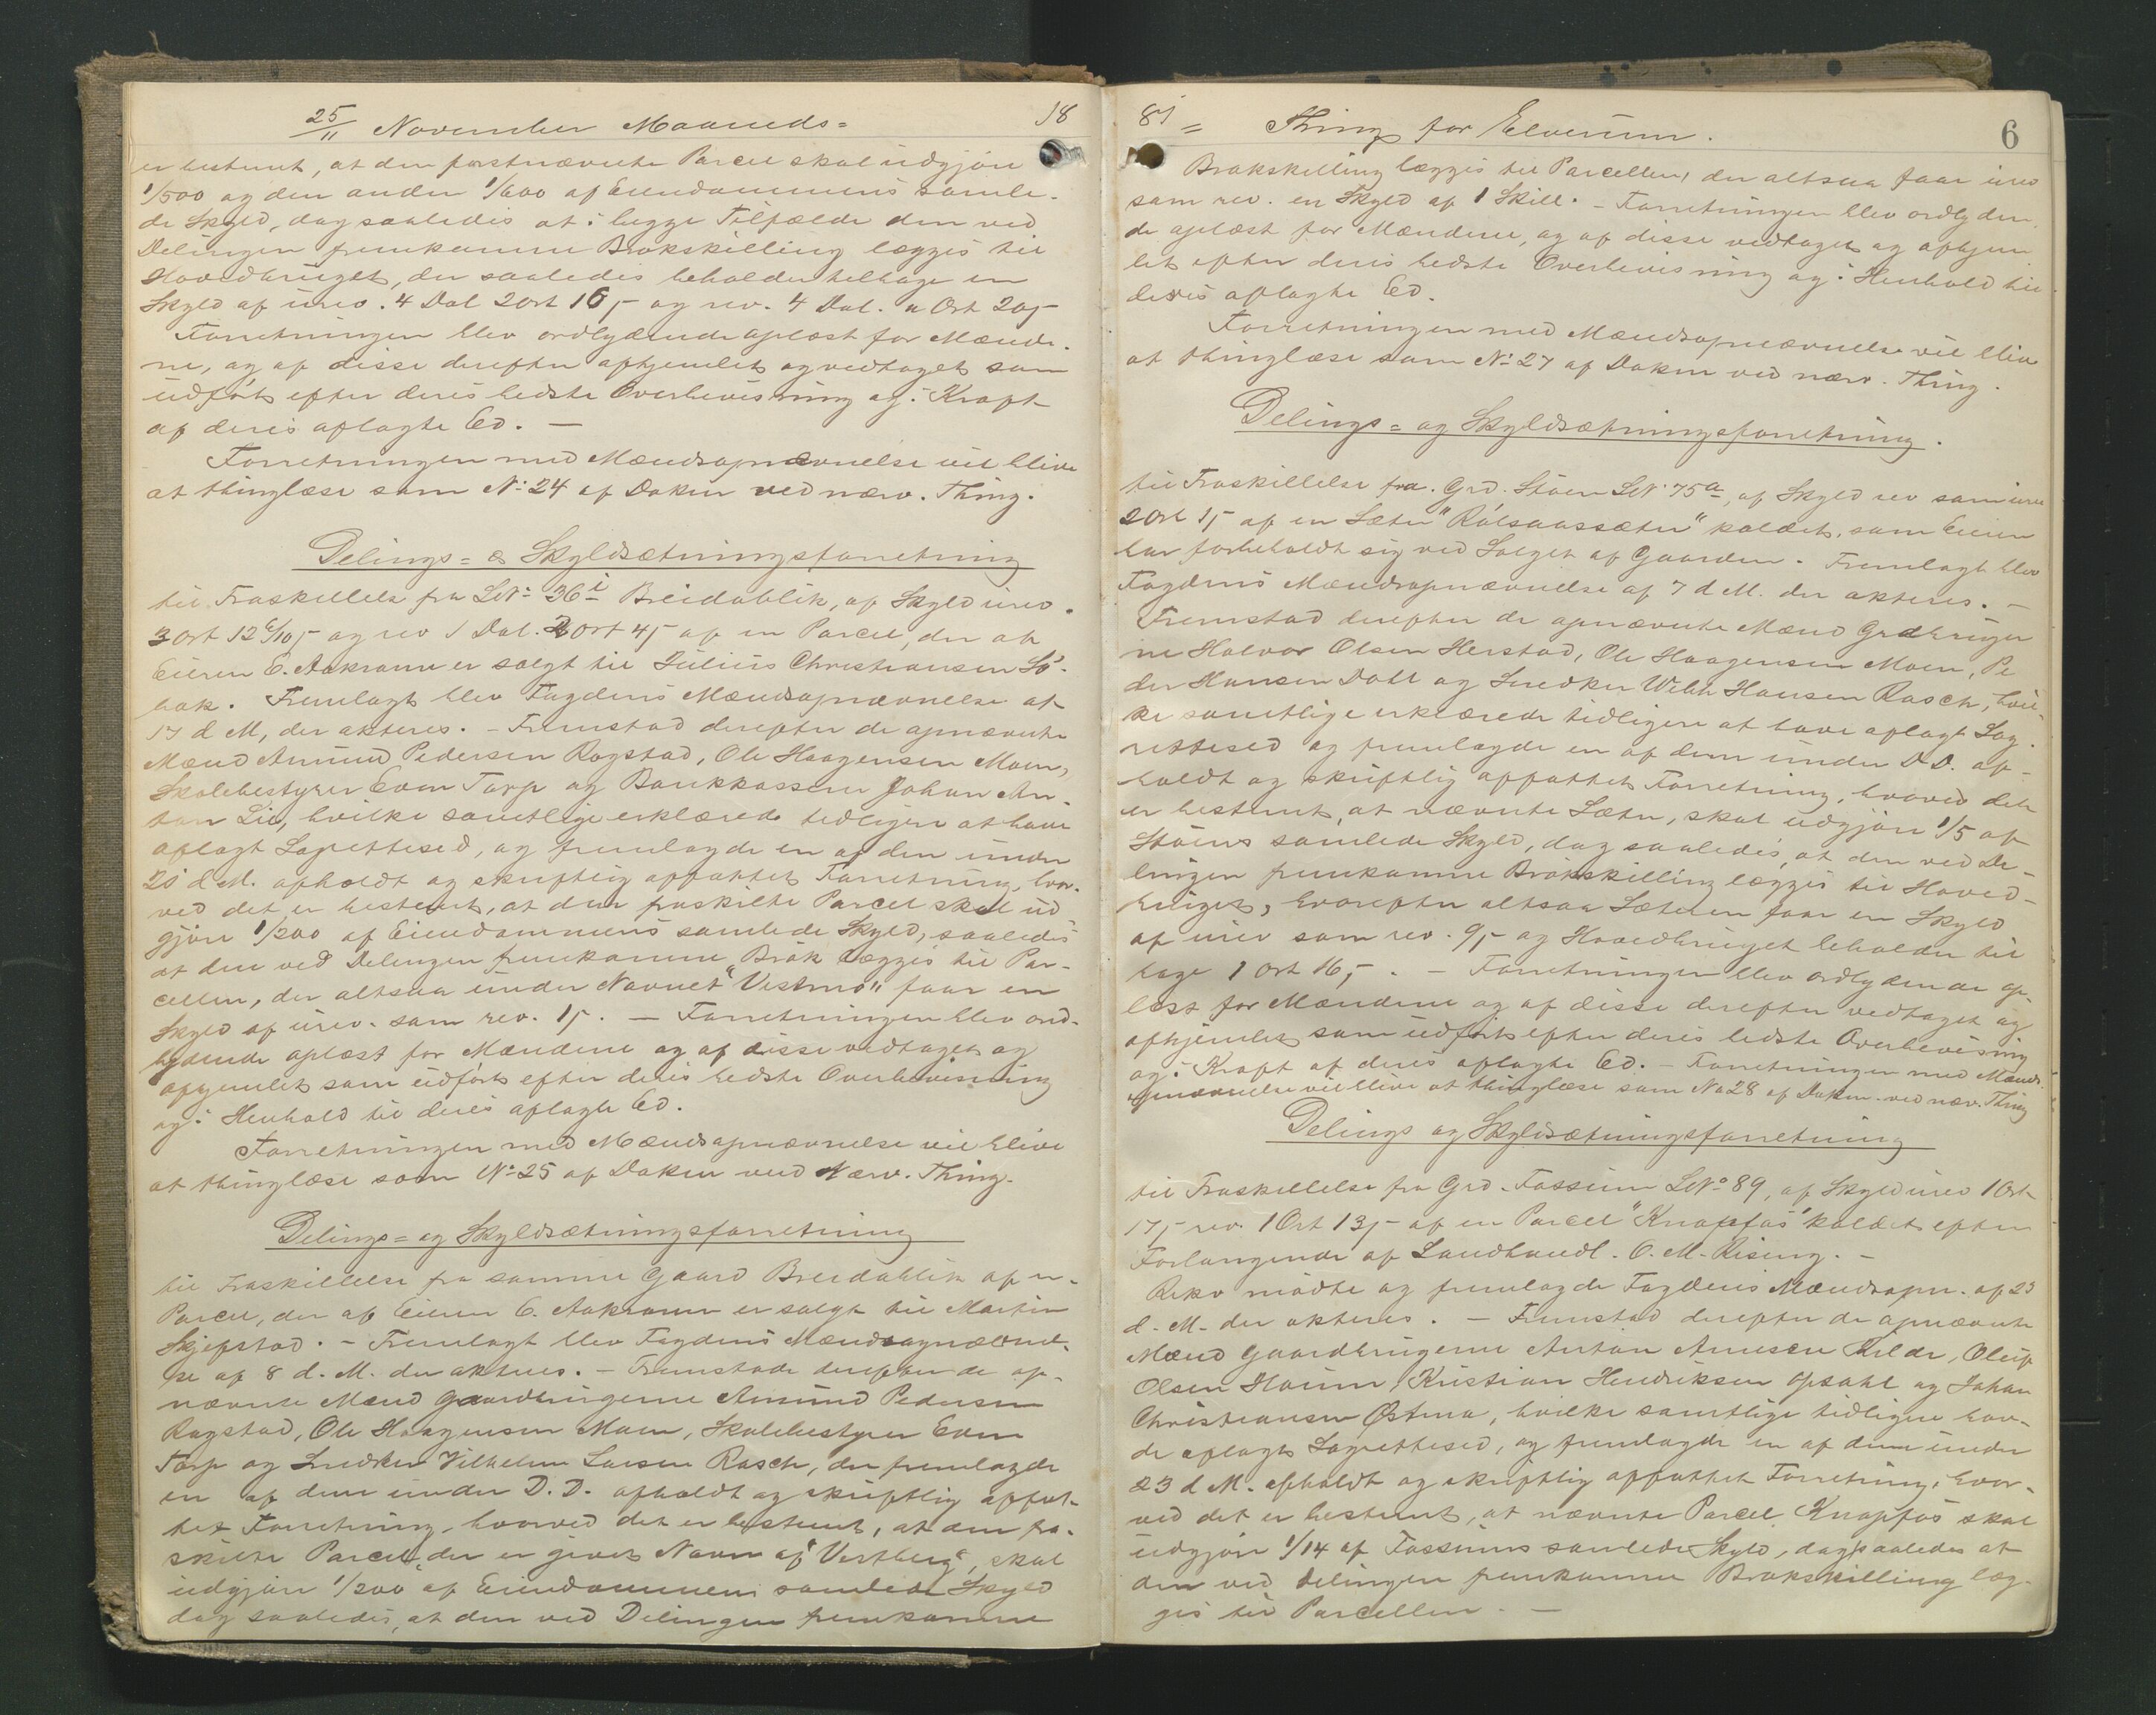 25/11 November Maaneds= 18
er bestemt, at den førstnævnte Parcel skal udgjøre
1/500 og den anden 1/600 af Eiendommens samle-
de Skyld, dog saaledes at i begge Tilfælde den ved
Delingen fremkomne Brøkskilling lægges til
Hovedbruget, der saaledes beholder tilbage en
Skyld af urev. 4 Dal 2 Ort 16,- og rev. 4 Dal. " Ort 20,-
Forretningen blev ordlydende oplæst for Mænde-
ne, og af disse derefter afhjemlet og vedtaget som
udført efter deres bedste Overbevisning og i Kraft
af deres aflagte Ed. —
Forretningen med Mændsopnævnelse vil blive
at thinglæse som No 24 af Dokm ved nærv. Thing.
Delings= & Skyldsætningsforretning
til Fraskillelse fra LNo 36i Breidablik, af Skyld urev.
3 Ort 12 6/10,- og rev 1 Dal. 2 Ort 4,- af en Parcel, der af
Eieren C. Aakrann er solgt til Julius Christiansen Sø-
bak. Fremlagt blev Fogdens Mændsopnævnelse af
17 d M, der akteres. - Fremstod derefter de opnævnte
Mænd Amund Pedersen Rogstad, Ole Haagensen Moen,
Skolebestyrer Even Torp og Bankkasserer Johan An-
ton Lie, hvilke samtlige erklærede tidligere at have
aflagt Lagrettesed, og fremlagde en af dem under
25 d M. afholdt og skriftlig affattet Forretning, hvor-
ved det er bestemt, at den fraskilte Parcel skal ud
gjøre 1/200 af Eiendommens samlede Skyld, saaledes
at den ved Delingen fremkomne Brøk lægges til Par-
cellen, der altsaa under Navnet "Vestmo" faar en
Skyld af urev. som rev. 1,-. — Forretningen blev ord-
lydende oplæst for Mændene og af disse vedtaget og
afhjemlet som udført efter deres bedste Overbevisning
og i Henhold til deres aflagte Ed.
Forretningen med Mændsopnævnelse vil blive
at thinglæse som No 25 af Dokm ved Nærv. Thing.
Delings= og Skyldsætningsforretning
til Fraskillelse fra samme Gaard Breidablik af en
Parcel, der af Eieren C. Aakrann er solgt til Martin
Skjefstad. - Fremlagt blev Fogdens Mændsopnævnel-
se af 8 d. M. der akteres. - Fremstode derefter de op-
nævnte Mænd Gaardbrugerne Amund Pedersen
Rogstad, Ole Haagensen Moen, Skolebestyrer Even
Torp og Snedker Vilhelm Larsen Rasch, der fremlagde
en af dem under D. D. afholdt og skriftlig affat-
tet Forretning, hvorved det er bestemt, at den fra-
skilte Parcel, der er givet Navn af "Vestberg", skal
udgjøre 1/200 af Eiendommens samlede Skyld
dog saaledes, at den ved Delingen fremkomne
87 = Thing for Elverum. 6
Brøkskilling lægges til Parcellen, der altsaa faar urev
som rev. en Skyld af 1 Skill. - Forretningen blev ordlyden
de oplæst for Mændene, og af disse vedtaget og afhjem
let efter deres bedste Overbevisning og i Henhold til
deres aflagte Ed.
Forretningen med Mændsopnævnelse vil blive
at thinglæse som No 27 af Dokm ved nærv. Thing.
Delings= og Skyldsætningsforretning.
til Fraskillelse fra Grd. Støen LNo 75a, af Skyld rev som urev
2 Ort 1,- af en Sæter "Rølsaassæter" kaldet, som Eieren
har forbeholdt sig ved Salget af Gaarden. Fremlagt blev
Fogdens Mændsopnævnelse af 7 d M. der akteres. —
Fremstod derefter de opnævnte Mænd Grdbruger
ne Halvor Olsen Herstad, Ole Haagensen Moen, Pe
der Hansen Dahl og Snedker Wilh Hansen Rasch, hvil-
ke samtlige erklærede tidligere at have aflagt Lag-
rettesed og fremlagde en af dem under D.D. af-
holdt og skriftlig affattet Forretning, hvorved det
er bestemt, at nævnte Sæter, skal udgjøre 1/5 af
Støens samlede Skyld, dog saaledes, at den ved De-
lingen fremkomne Brøkskilling lægges til Hoved-
bruget, hvorefter altsaa Sæteren faar en Skyld
af urev som rev. 9,- og Hovedbruget beholder til
bage 1 Ort 16,-. - Forretningen blev ordlydende op-
læst for Mændene og af disse derefter vedtaget og
afhjemlet som udført efter deres bedste Overbevisning
og i Kraft af deres aflagte Ed. - Forretningen med Mænds-
opnævnelse vil blive at thinglæse som No 28 af Dokm. ved nærv. Thing
Delings og Skyldsætningsforretning
til Fraskillelse fra Grd. Fossum LNo 89, af Skyld urev 1 Ort
17,- rev. 1 Ort 13,- af en Parcel "Knapfos" kaldet efter
Forlangende af Landhandl. C. M. Rising. —
Rekv mødte og fremlagde Fogdens Mændsopn. af 23
d. M. der akteres. — Fremstod derefter de opnævnte
Mænd Gaardbrugerne Anton Arnesen Kilde, Oluf
Olsen Houm, Kristian Hendriksen Opsahl og Johan
Christiansen Østmo, hvilke samtlige tidligere hav-
de aflagt Lagrettesed, og fremlagde en af dem under
23 d M. afholdt og skriftlig affattet Forretning, hvor-
ved det er bestemt, at nævnte Parcel Knapfos skal
udgjøre 1/14 af Fossums samlede Skyld, dog saaledes at
den ved delingen fremkomne Brøkskilling læg-
ges til Parcellen. —